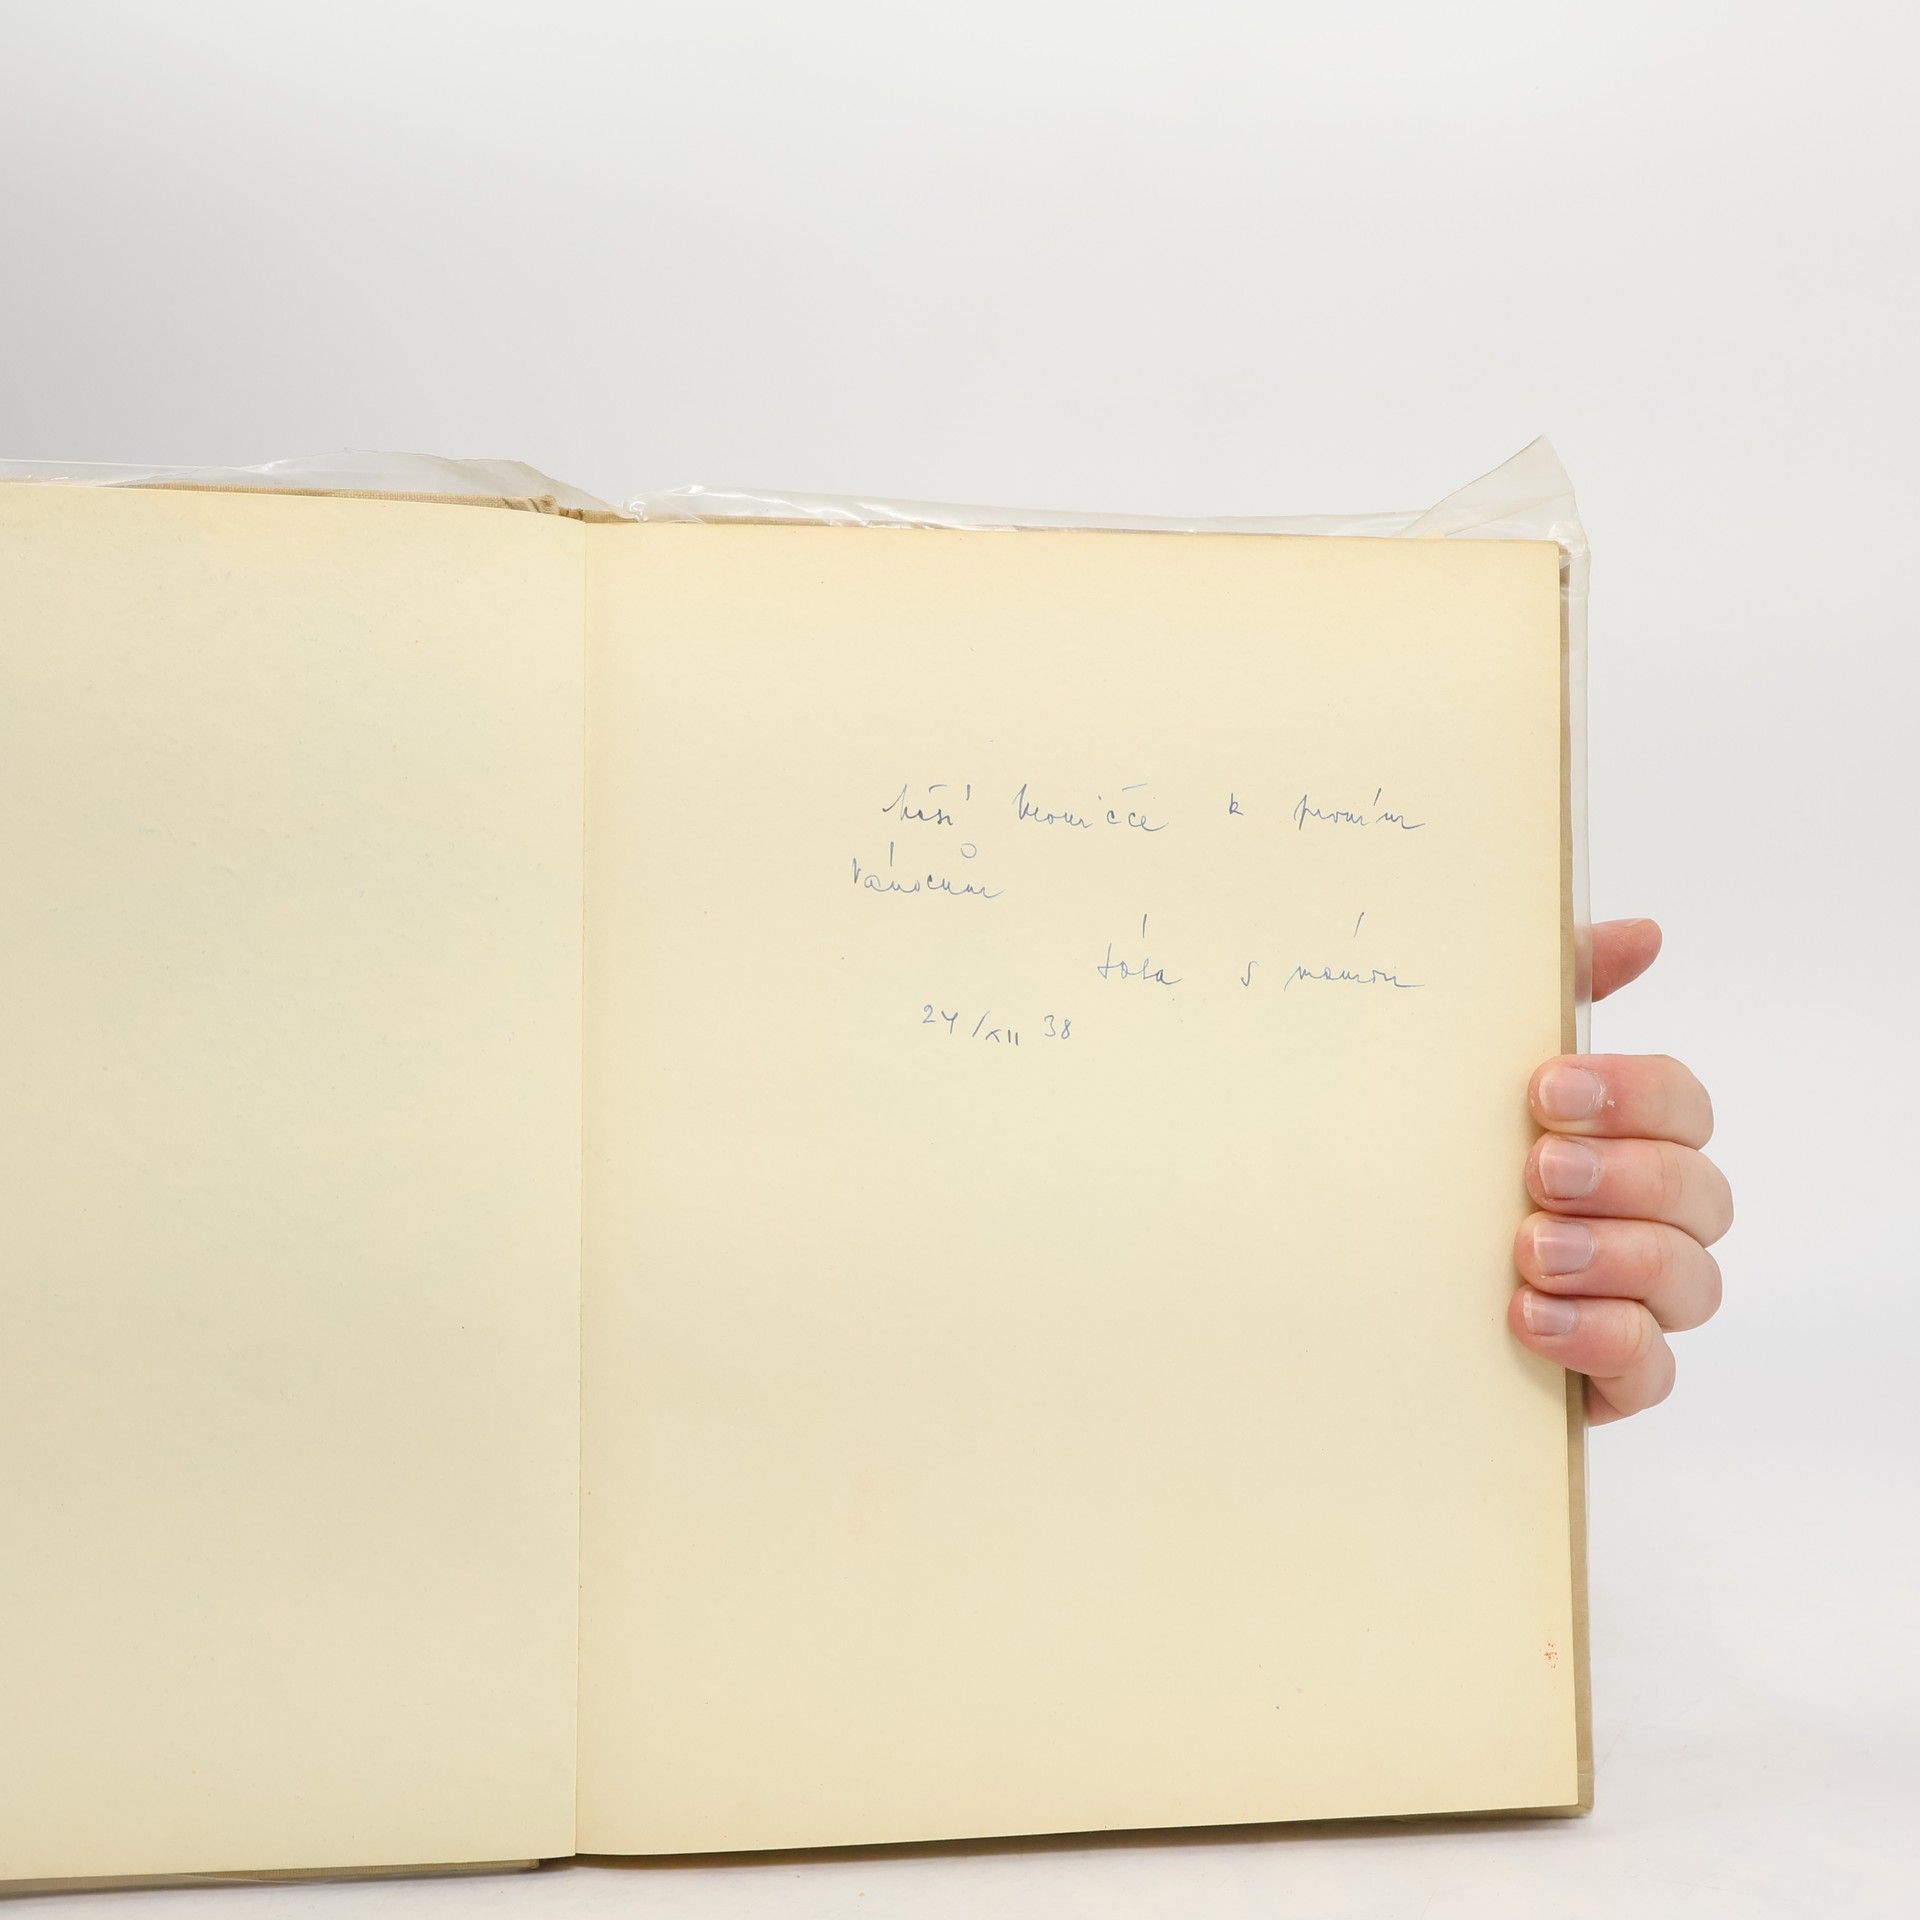 Naší Moničce k prvním
Vánocům
táta s mámou
24/XII 38